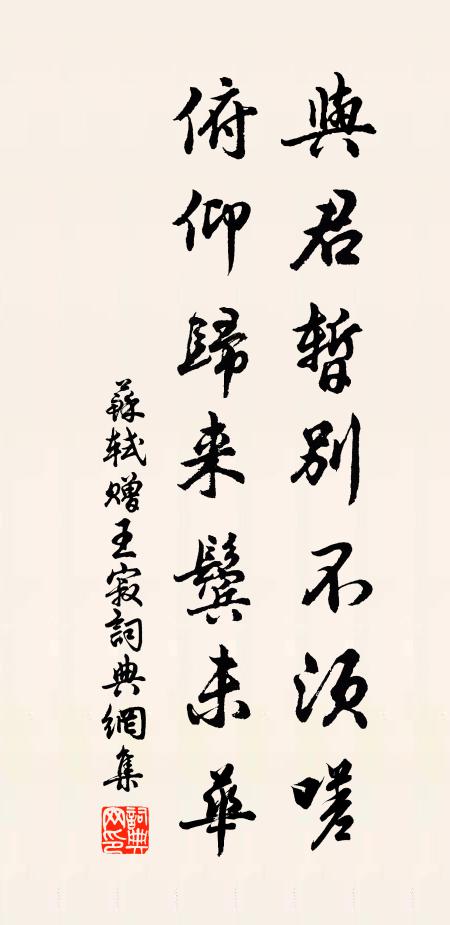 與君暫别不須嗟
俯仰歸来鬢未華
蘇軾贈王寂詞典網集
詞典网印